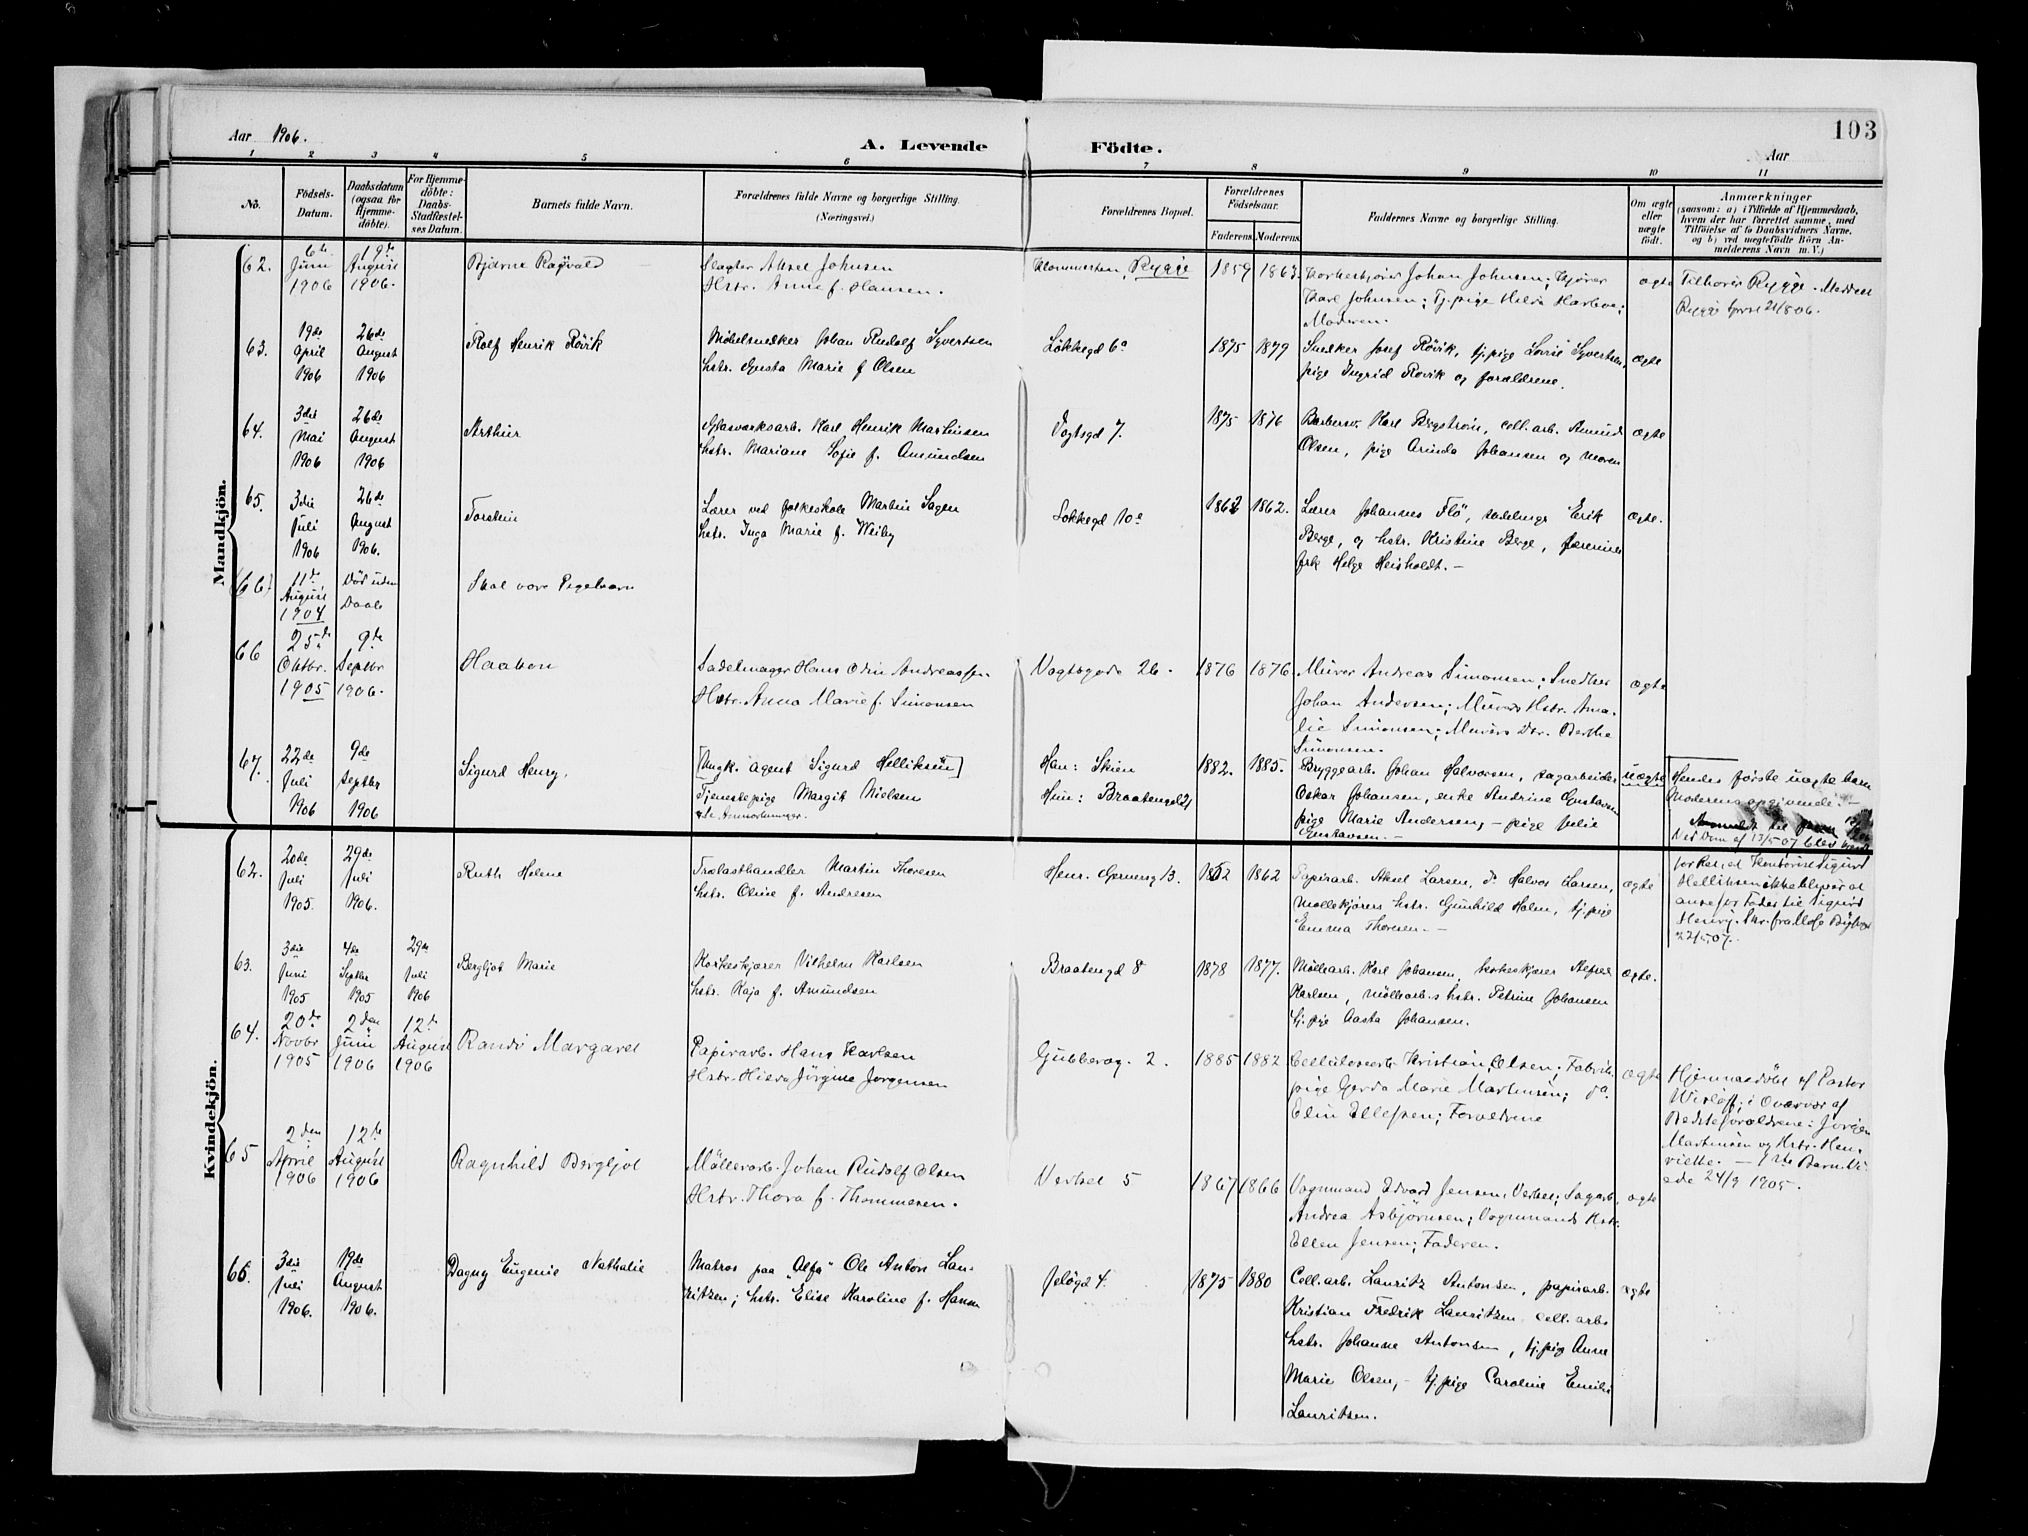 103
Aar 1906.
A. Levende Födte.
Aar
1 2 3 4 5 6 7 8 9 10 11
No.
Födsels-
Datum.
Daabsdatum
(ogsaa for
Hjemme-
döbte).
For Hjemme-
döbte:
Daabs-
Stadfæstel-
ses Datum.
Barnets fulde Navn.
Forældrenes fulde Navne og borgerlige Stilling.
(Næringsvei.)
Forældrenes Bopæl.
Forældrenes
Födselsaar.
Faderens. Moderens.
Faddernes Navne og borgerlige Stilling.
Om ægte
eller
uægte
födt.
Anmærkninger
(saasom: a) i Tilfælde af Hjemmedaab,
hvem der har forrettet samme, med
Tilföielse af to Daabsvidners Navne,
og b) ved uægtefödte Börn An-
melderens Navn m. V.)
Mandkjön.
62.
6te
Juni
1906
19de
August
1906.
Bjarne Ragvald
Slagter Aksel Johnsen
Hstr. Anne f. Hansen.
Rygge
1859 1863.
Johan Johnsen; Kjører
Karl Johnsen; Tj.pige Hilda
Moderen.
ægte
Tilhører Rygge. Meddelt
63.
19de
April
1906
26de
August
1906
Rolf Henrik Rövik
Møbelsnedker Johan Rudolf Syvertsen
hstr. Gusta Marie f Olsen
Løkkegd 6a
1875 1879
Snedker Josef Rövik, tj.pige Lovise Syvertsen,
pige Ingrid Rovik og forældrene.
ægte
64.
3die
Mai
1906
26de
August
1906
Arthur
Glasværksarb. Karl Henrik Martinsen
hstr. Mariane Sofie f. Amundsen
Vogtsgd 7.
1875 1876
Barbersv. Karl Bergström, cell.arb. Amund
Olsen, pige Arinda Johansen og moren
ægte
65.
3die
Juli
1906
26de
August
1906.
Torstein
Lærer ved folkeskole Martin Sagen
hstr. Inga Marie f. Weiby
Løkkegd 10a
1862 1862.
Lærer Johannes Flö, Erik
Berge, og hstr. Kristine Berge,
frk Helga Heisholdt. -
ægte.
(66)
11de
August
1904
Död uden
Daab
Skal være Pigebarn
66
25de
Oktbr.
1905
9de
Septbr
1906.
Haakon
Sadelmager Hans Odin Andreassen
Hstr. Anna Marie f. Simonsen
Vogtsgade 26.
1876 1876.
Murer Andreas Simonsen; Snedker
Johan Andersen; Murers Hstr. Ama-
lie Simonsen; Murers Dtr. Berthe
Simonsen.
ægte
67.
22de
Juli
1906
9de
Septbr
1906
Sigurd Henry.
[Ungk. agent Sigurd Helliksen]
Tjenestepige Margit Nielsen
se Anmærkninger.
Han: Skien
Hun: Braatengd 21
1882. 1885.
Bryggearb. Johan Halvorsen, sagarbeider
Oskar Johansen, enke Andrine Gustavsen
pige Marie Andersen, - pige Julie
Gustavsen. -
uægte
Hendes første uægte barn
Moderens opgivende. -
Ved Dom af 13/5 07 blev
Sigurd
Helliksen ikke bliver at
anse for Fader til Sigurd
Henry.
22/5 07.
Kvindekjön.
62.
20de
Juli
1905.
29de
Juli
1906.
Ruth Helene
Trælasthandler Martin Thoresen
hstr. Oline f. Andresen
13.
1862
Papirarb. Aksel Larsen, do Halvor Larsen,
Møllekjørers hstr. Gunhild Holm, tj.pige
Emma Thoresen. -
ægte
63.
3die
Juni
1905
4de
Septbr
1905
29de
Juli
1906
Bergljot Marie
Korkeskjærer Vilhelm Karlsen
hstr. Kaja f. Amundsen
Braatengd 8
1878 1877.
Møllearb. Karl Johansen, korkeskjærer Alfred
Karlsen, møllearb.s hstr. Petrine Johansen
tj.pige Aasta Johansen.
ægte.
64.
20de
Novbr
1905
2den
Juni
1906
12te
August
1906
Randi Margaret
Papirarb. Hans Karlsen
Hstr. Hilda Jörgine Jørgensen
2.
1885 1882
Cellulosearb Kristian Olsen; Fabrik-
pige Gerda Marie Martinsen; do.
Elin Ellefsen; Forældrene
ægte
Hjemmedöbt af Pastor
i Overvær af
Bedsteforældrene: Jørgen
Martinsen og Hstr. Hen-
riette. - 1ste Barn. Vi-
ede 24/9 1905.
65
2den
April
1906
12te
August
1906
Ragnhild Bergljot
Möllearb. Johan Rudolf Olsen
Hstr. Thora f. Thommesen.
Verket 5
1867 1866
Vognmand Edvard Jensen, Verket; Sagarb.
Andrea Asbjørnsen; Vognmands Hstr.
Ellen Jensen; Faderen.
ægte
66.
3die
Juli
1906.
19de
August
1906.
Dagny Eugenie Nathalie
Matros paa "Alfa" Ole Anton Lau-
ritzen; hstr. Elise Karoline f. Hansen
Jeløgd 4.
1875 1880
Cell.arb. Lauritz Antonsen, papirarb.
Kristian Fredrik Lauritzen cell.arbs
hstr. Johanne Antonsen, tj.pige Anne
Marie Olsen, - tj.pige Caroline Emilie
Lauritsen.
ægte